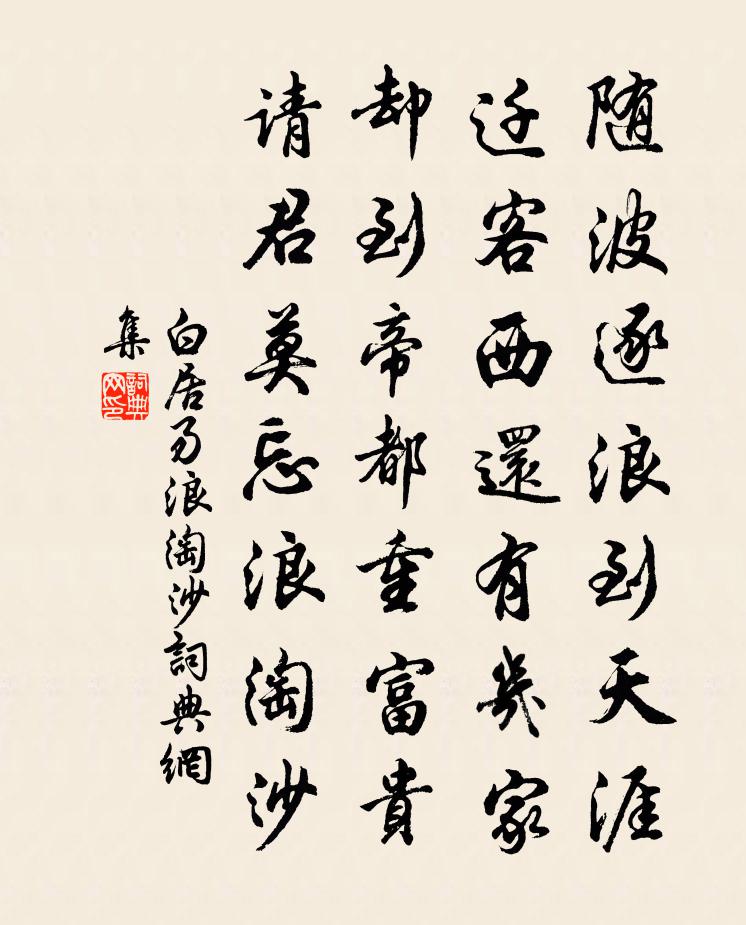 随波逐浪到天涯
迁客西還有幾家
却到帝都重富貴
请君莫忘浪淘沙
白居易浪淘沙詞典網
集
詞典
网印